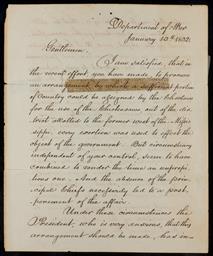 Department of War
January 10th 1832.
Gentlemen,
I am satisfied, that in
the recent effort, you have made, to procure
an arrangement, by which a sufficient portion
of Country could be assigned by the Choctaws
for the use of the Chickasaws out of the dis-
trict allotted to the former west of the Missis-
sippi, every exertion was used to effect the
object of the government. But circumstances
independent of your control, seem to have
combined to render the time an unpropi-
tious one. And the absence of the prin-
cipal Chiefs necessarily led to a post-
ponement of the affair.
Under these circumstances the
President, who is very anxious, that this
arrangement should be made, has in-